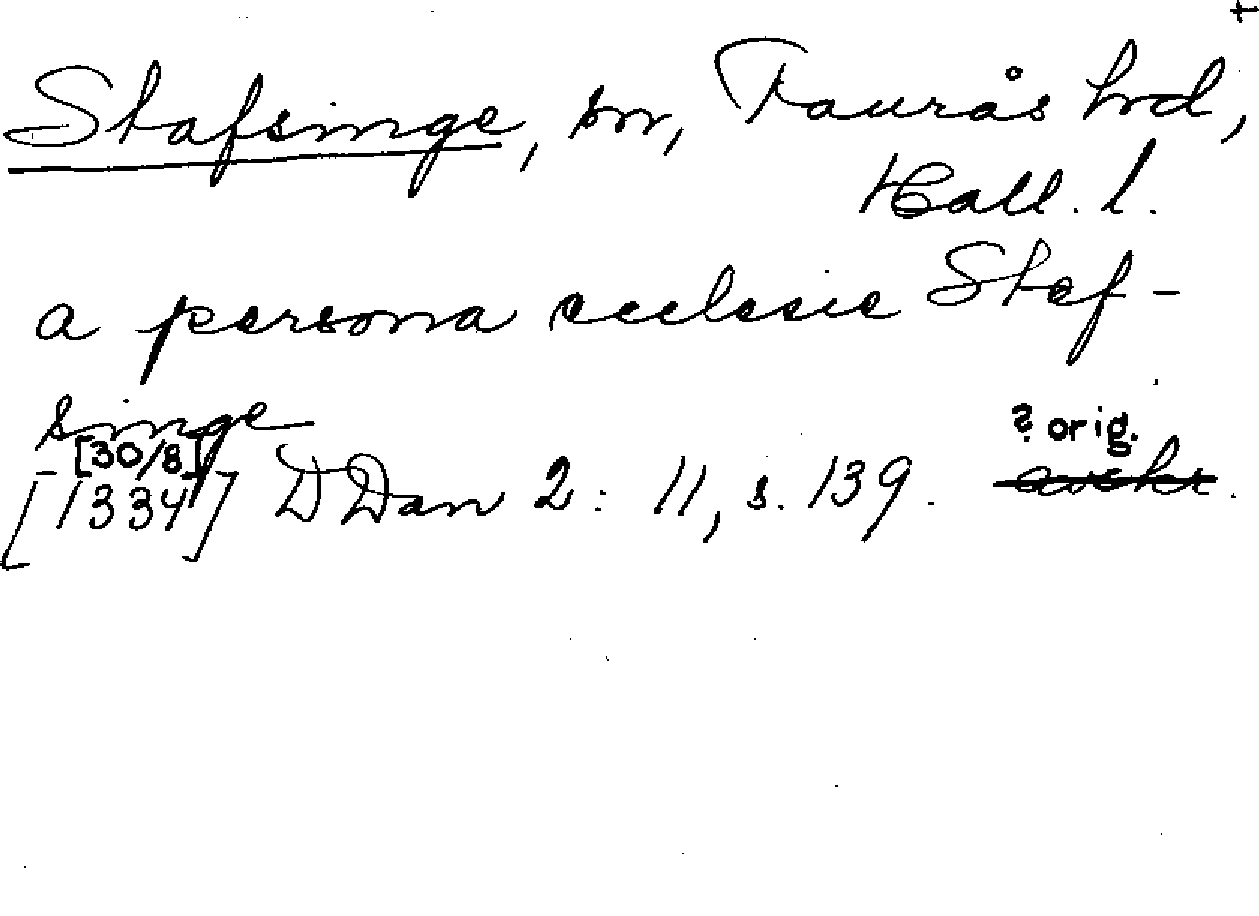 +
Stafsinge, sn, Faurås hd,
Hall. l.
a persona ecclesie Staf-
singe
[30/8] ? orig.
[1334] DDan 2: 11, s. 139. avskr.